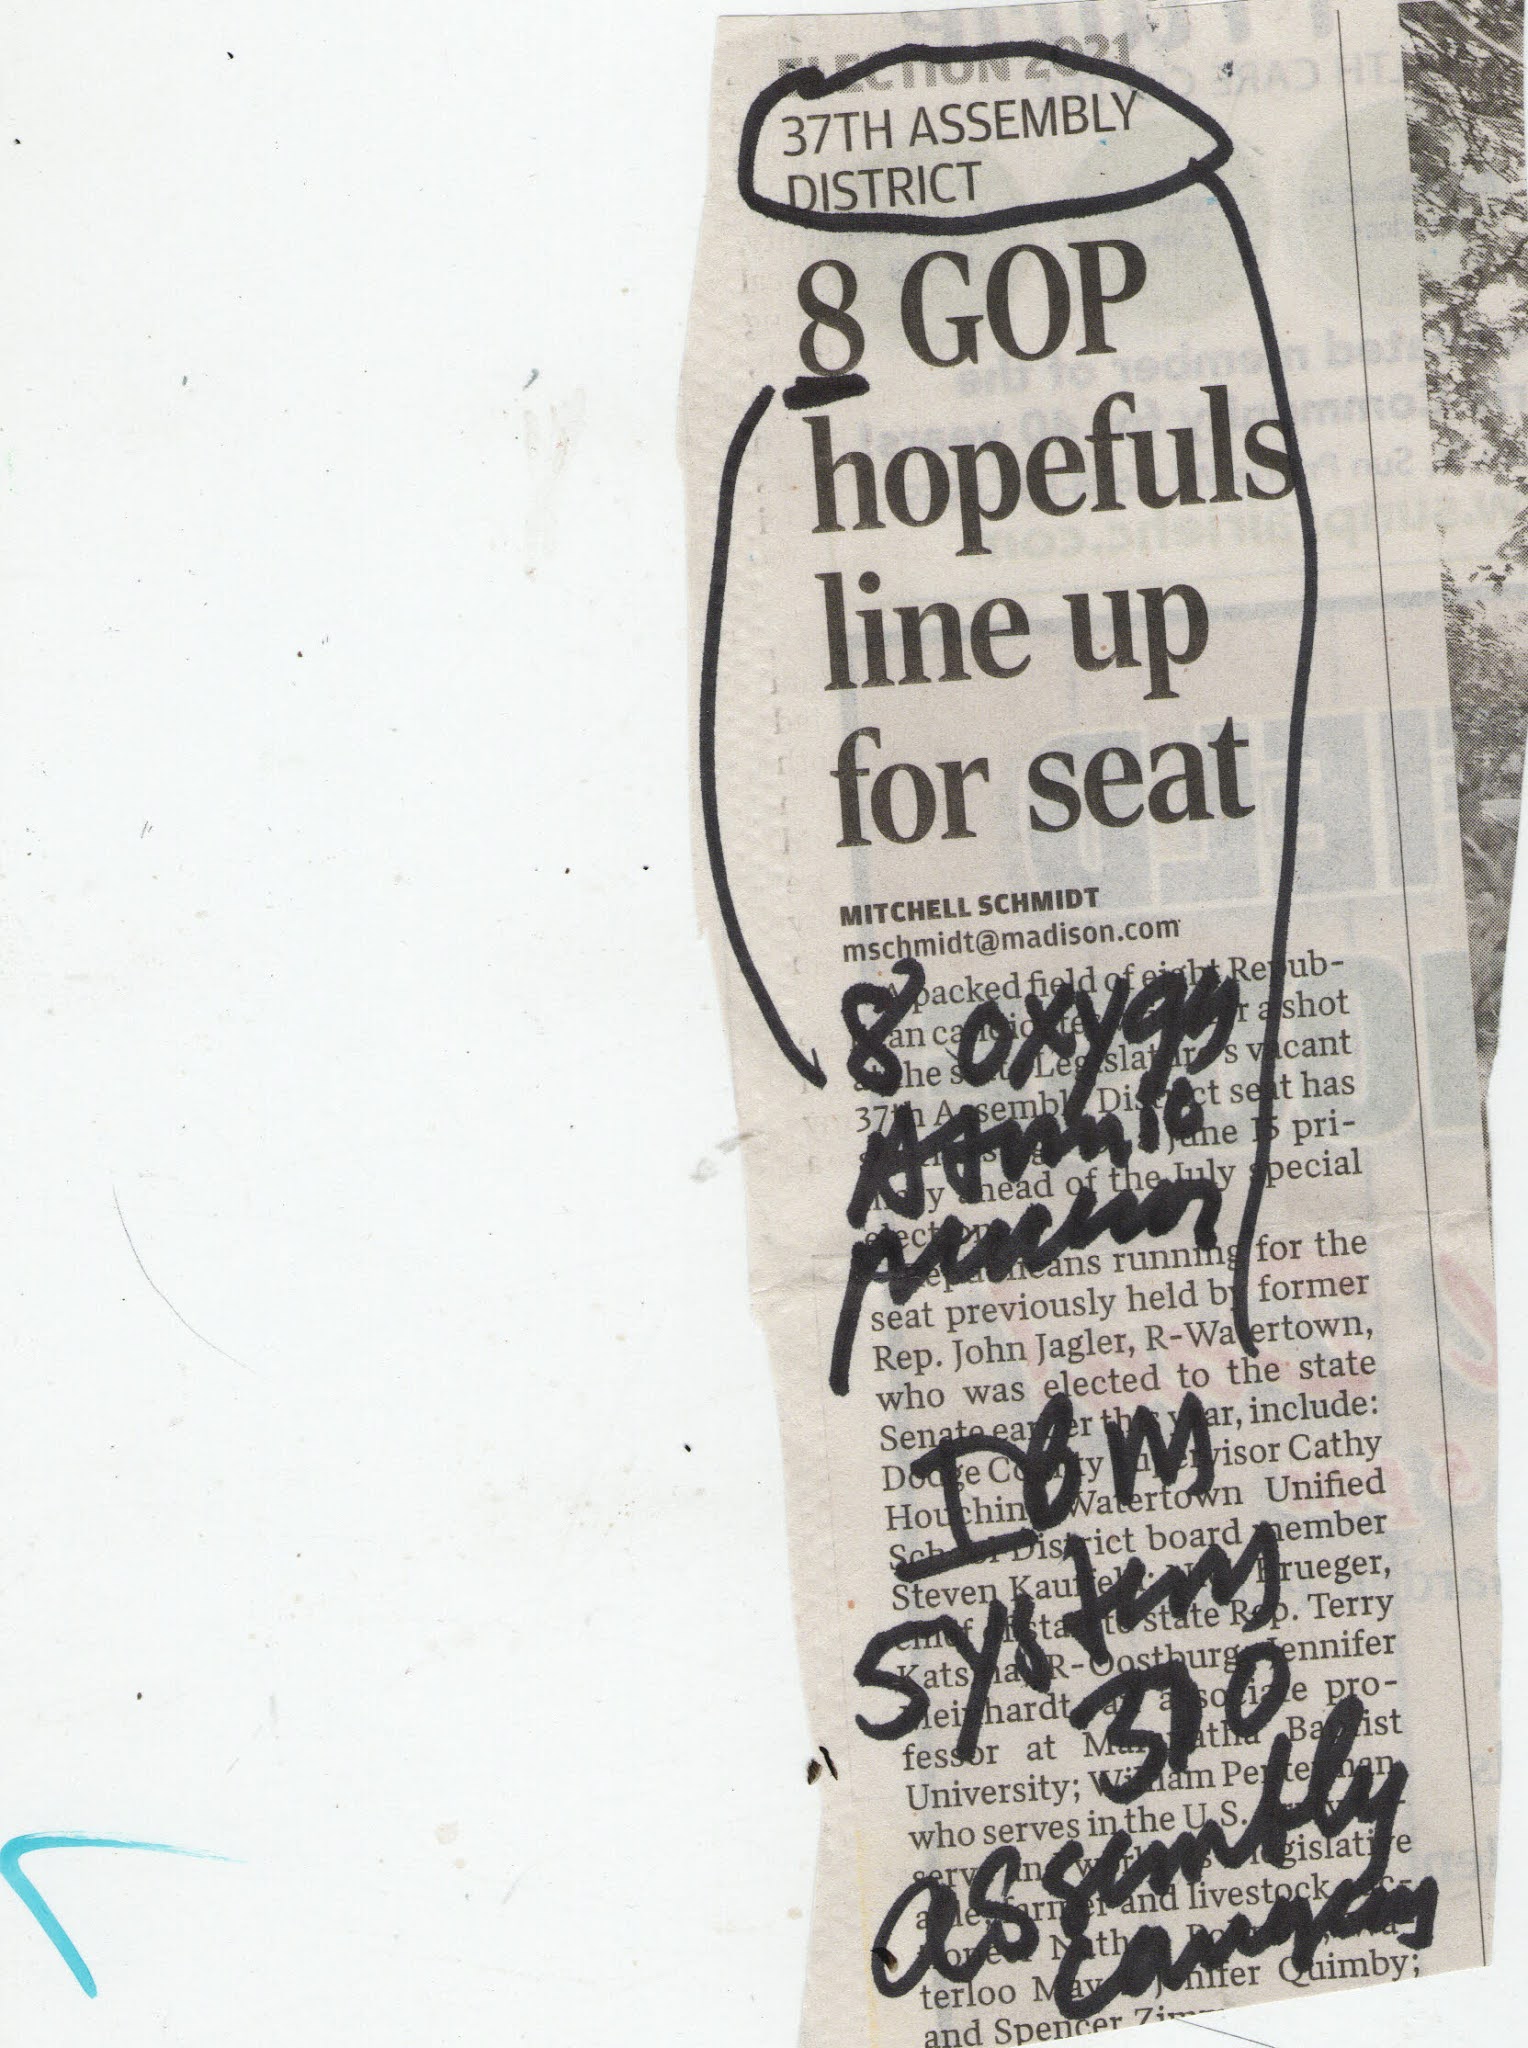 ELECTION 2021
37TH ASSEMBLY
DISTRICT
8 GOP
hopefuls
line up
for seat
MITCHELL SCHMIDT
mschmidt@madison.com
A packed field of eight Repub-
an candidates for a shot
at the state Legislature's vacant
37th Assembly District seat has
June 15 pri-
mary ahead of the July special
election.
Republicans running for the
seat previously held by former
Rep. John Jagler, R-Watertown,
who was elected to the state
Senate earlier this year, include:
Dodge County Supervisor Cathy
Houchin; Watertown Unified
School District board member
Steven Kauffeld; Krueger,
chief of staff to state Rep. Terry
Katsma, R-Oostburg; Jennifer
Meinhardt, an associate pro-
fessor at Maranatha Baptist
University; William Penterman,
who serves in the U.S.
legislative
farmer and livestock
Nathan
terloo Mayor Jenifer Quimby;
and Spencer
8 oxygen
Atomic
number
IBM
systems
370
assembly
language